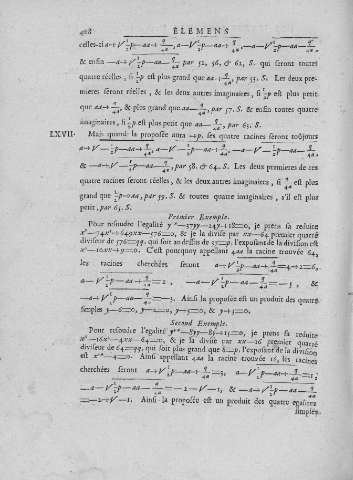 408 ELEMENS
celles-ci a+√½p—aa+q/4a, a—√½p—aa+q/4a, —a+√½p—aa—q/4a,
& enfin —a—√½p—aa—q/4a par 52, 56, & 62, S. qui seront toutes
quatre réelles; si ½p est plus grand que aa+q/4a, par 53. S. Les deux pre-
mieres seront réelles, & les deux autres imaginaires, si ½p est plus petit
que aa+q/4a, & plus grand que aa—q/4a, par 57. S. & enfin toutes quatre
imaginaires, si ½p est plus petit que aa—q/4a, par 63. S.
LXVII. Mais quand la proposée aura +p, ses quatre racines seront toûjours
a+√—½p—aa+q/4a, a—√—½p—aa+q/4a, —a+√—½p—aa—q/4a,
& —a—√—½p—aa—q/4a, par 58. & 64. S. Les deux premieres de ces
quatre racines seront réelles, & les deux autres imaginaires, si q/4a est plus
grand que ½p+aa, par 59. S. & toutes quatre imaginaires, s'il est plus
petit, par 65. S.
Premier Exemple.
Pour resoudre l'egalité
je prens sa reduite
& je la divise par xx—64 premier quarré
diviseur de 576=qq, qui soit au dessus de
l'exposant de la division est
C'est pourquoy appellant 4aa la racine trouvée 64,
les racines cherchées seront a+√½p—aa+q/4a=4+2=6,
a—√½p—aa+q/4a=2, —a+√½p—aa—q/4a=—5, &
—a—√½p—aa—q/4a=—3. Ainsi la proposée est un produit des quatre
simples y—6=0, y—2=0, y+5=0, & y+3=0.
Second Exemple.
Pour resoudre l'egalité
je prens sa reduite
& je la divise par xx—16 premier quarré
diviseur de 64=qq, qui soit plus grand que 8=p, l'exposant de la division
est
Ainsi appellant 4aa la racine trouvée 16, les racines
cherchées seront a+√½p—aa+q/4a=3, a—√½p—aa+q/4a=1,
—a+√½p—aa—q/4a=—2+√—1, & —a—√½p—aa—q/4a
=—2—√—1. Ainsi la proposée est un produit des quatre egalitez
simples